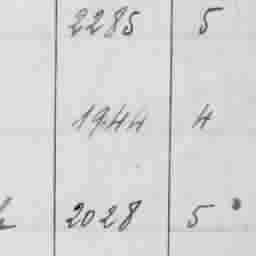 2285 5
1944 4
2028 5